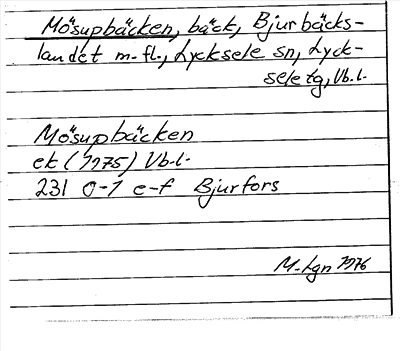 Mösupbäcken, bäck, Bjurbäcks-
landet m.fl., Lycksele sn, Lyck-
sele tg, Vb.l.
Mösupbäcken
ek (1975) Vb.l.
231 0-1 e-f Bjurfors
M.Lgn 1976